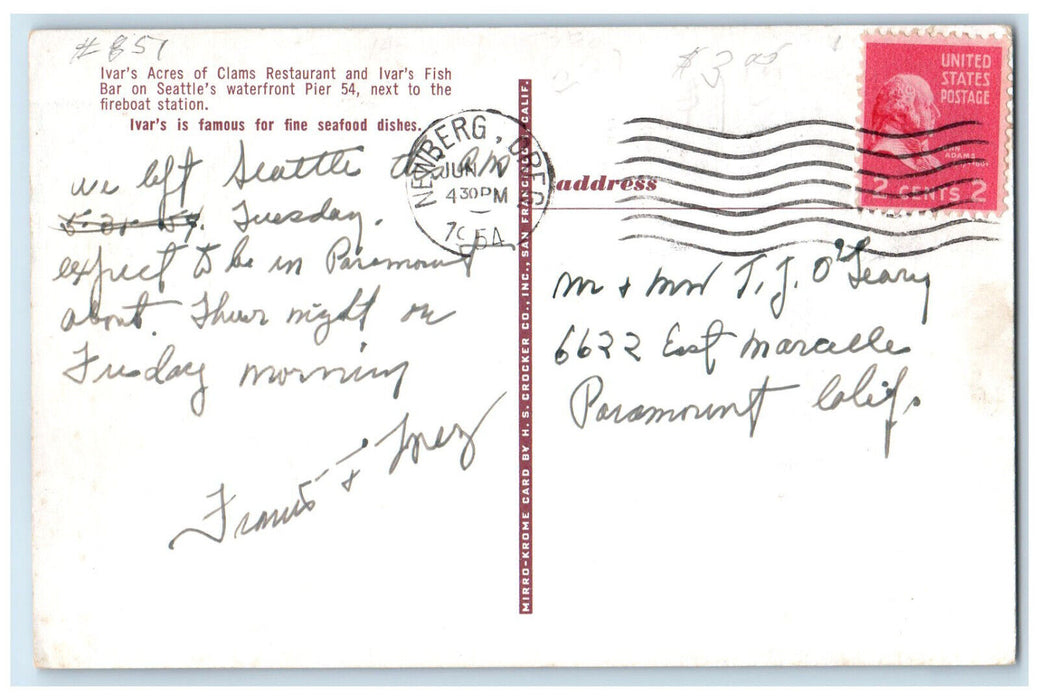 # 851
$3.00
Ivar's Acres of Clams Restaurant and Ivar's Fish
Bar on Seattle's waterfront Pier 54, next to the
fireboat station.
Ivar's is famous for fine seafood dishes.
we left Seattle this
Tuesday.
expect to be in Paramount
about. Thur night or
Friday morning
Francis + Inez
NEWBERG, OREG
JUN
430PM
1954
MIRRO-KROME CARD BY H. S. CROCKER CO., INC., SAN FRANCISCO, CALIF.
address
UNITED
STATES
POSTAGE
ADAMS
2 CENTS 2
Mr + Mrs T. J. O'Leary
6622 East Marcelle
Paramount Calif.